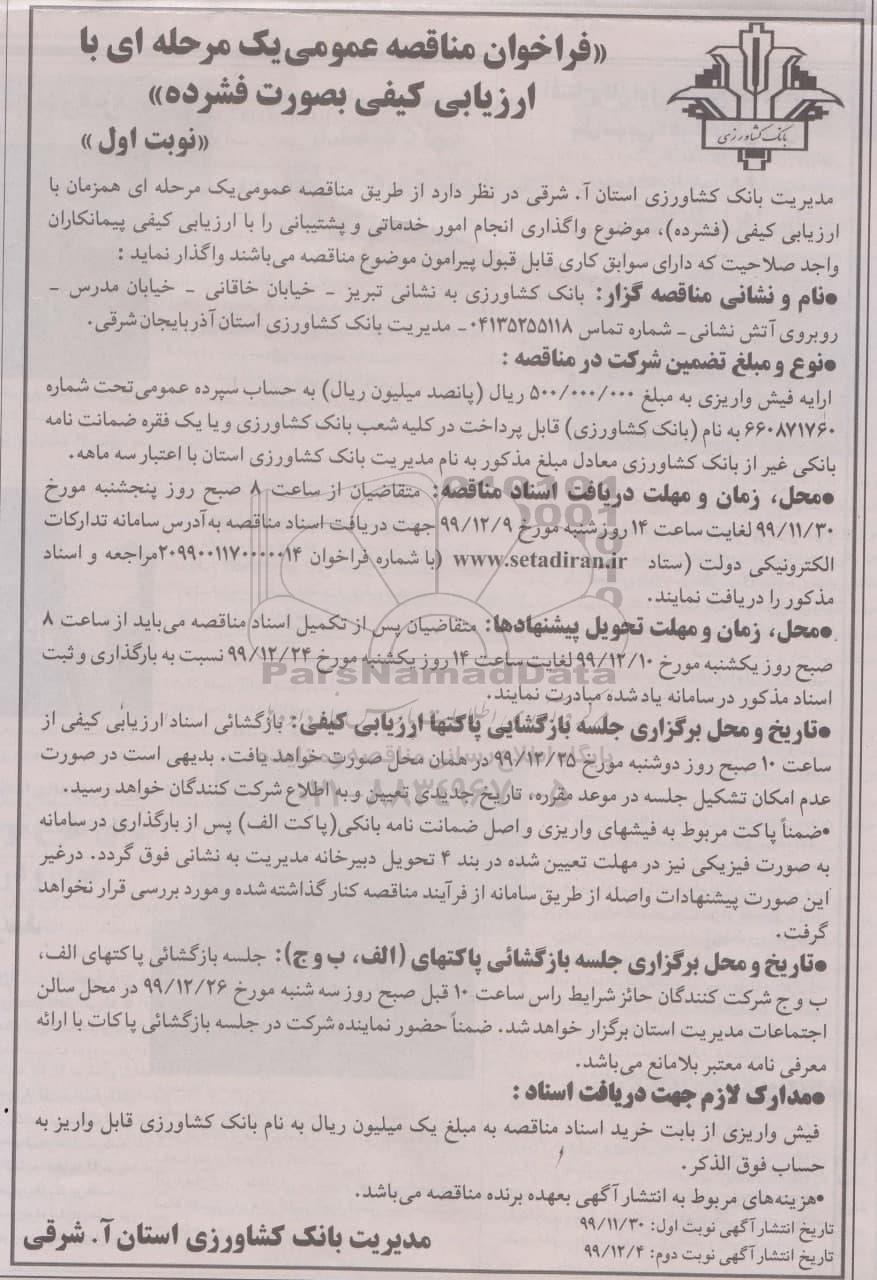 «فراخوان مناقصه عمومی یک مرحله ای با
ارزیابی کیفی بصورت فشرده»
«نوبت اول»
بانک کشاورزی
مدیریت بانک کشاورزی استان آ. شرقی در نظر دارد از طریق مناقصه عمومی یک مرحله ای همزمان با
ارزیابی کیفی (فشرده)، موضوع واگذاری انجام امور خدماتی و پشتیبانی را با ارزیابی کیفی پیمانکاران
واجد صلاحیت که دارای سوابق کاری قابل قبول پیرامون موضوع مناقصه می‌باشند واگذار نماید :
•نام و نشانی مناقصه گزار: بانک کشاورزی به نشانی تبریز - خیابان خاقانی - خیابان مدرس -
روبروی آتش نشانی- شماره تماس ۰۴۱۳۵۲۵۵۱۱۸- مدیریت بانک کشاورزی استان آذربایجان شرقی.
•نوع و مبلغ تضمین شرکت در مناقصه :
ارایه فیش واریزی به مبلغ ۵۰۰/۰۰۰/۰۰۰ ریال (پانصد میلیون ریال) به حساب سپرده عمومی تحت شماره
۶۶۰۸۷۱۷۶۰ به نام (بانک کشاورزی) قابل پرداخت در کلیه شعب بانک کشاورزی و یا یک فقره ضمانت نامه
بانکی غیر از بانک کشاورزی معادل مبلغ مذکور به نام مدیریت بانک کشاورزی استان با اعتبار سه ماهه.
•محل، زمان و مهلت دریافت اسناد مناقصه: متقاضیان از ساعت ۸ صبح روز پنجشنبه مورخ
۹۹/۱۱/۳۰ لغایت ساعت ۱۴ روز شنبه مورخ ۹۹/۱۲/۹ جهت دریافت اسناد مناقصه به آدرس سامانه تدارکات
الکترونیکی دولت (ستاد www.setadiran.ir (با شماره فراخوان ۲۰۹۹۰۰۱۱۷۰۰۰۰۰۱۴مراجعه و اسناد
مذکور را دریافت نمایند.
•محل، زمان و مهلت تحویل پیشنهادها: متقاضیان پس از تکمیل اسناد مناقصه می‌باید از ساعت ۸
صبح روز یکشنبه مورخ ۹۹/۱۲/۱۰ لغایت ساعت ۱۴ روز یکشنبه مورخ ۹۹/۱۲/۲۴ نسبت به بارگذاری و ثبت
ParsNamadData
اسناد مذکور در سامانه یاد شده مبادرت نمایند.
•تاریخ و محل برگزاری جلسه بازگشایی پاکتها ارزیابی کیفی: بازگشائی اسناد ارزیابی کیفی از
ساعت ۱۰ صبح روز دوشنبه مورخ ۹۹/۱۲/۲۵ در همان محل صورت خواهد یافت. بدیهی است در صورت
عدم امکان تشکیل جلسه در موعد مقرره، تاریخ جدیدی تعیین و به اطلاع شرکت کنندگان خواهد رسید.
•ضمناً پاکت مربوط به فیشهای واریزی و اصل ضمانت نامه بانکی(پاکت الف) پس از بارگذاری در سامانه
به صورت فیزیکی نیز در مهلت تعیین شده در بند ۴ تحویل دبیرخانه مدیریت به نشانی فوق گردد. درغیر
این صورت پیشنهادات واصله از طریق سامانه از فرآیند مناقصه کنار گذاشته شده و مورد بررسی قرار نخواهد
گرفت.
•تاریخ و محل برگزاری جلسه بازگشائی پاکتهای (الف، ب و ج): جلسه بازگشائی پاکتهای الف،
ب و ج شرکت کنندگان حائز شرایط راس ساعت ۱۰ قبل صبح روز سه شنبه مورخ ۹۹/۱۲/۲۶ در محل سالن
اجتماعات مدیریت استان برگزار خواهد شد. ضمناً حضور نماینده شرکت در جلسه بازگشائی پاکات با ارائه
معرفی نامه معتبر بلامانع می‌باشد.
•مدارک لازم جهت دریافت اسناد :
فیش واریزی از بابت خرید اسناد مناقصه به مبلغ یک میلیون ریال به نام بانک کشاورزی قابل واریز به
حساب فوق الذکر.
•هزینه‌های مربوط به انتشار آگهی بعهده برنده مناقصه می‌باشد.
تاریخ انتشار آگهی نوبت اول: ۹۹/۱۱/۳۰
تاریخ انتشار آگهی نوبت دوم: ۹۹/۱۲/۴
مدیریت بانک کشاورزی استان آ. شرقی